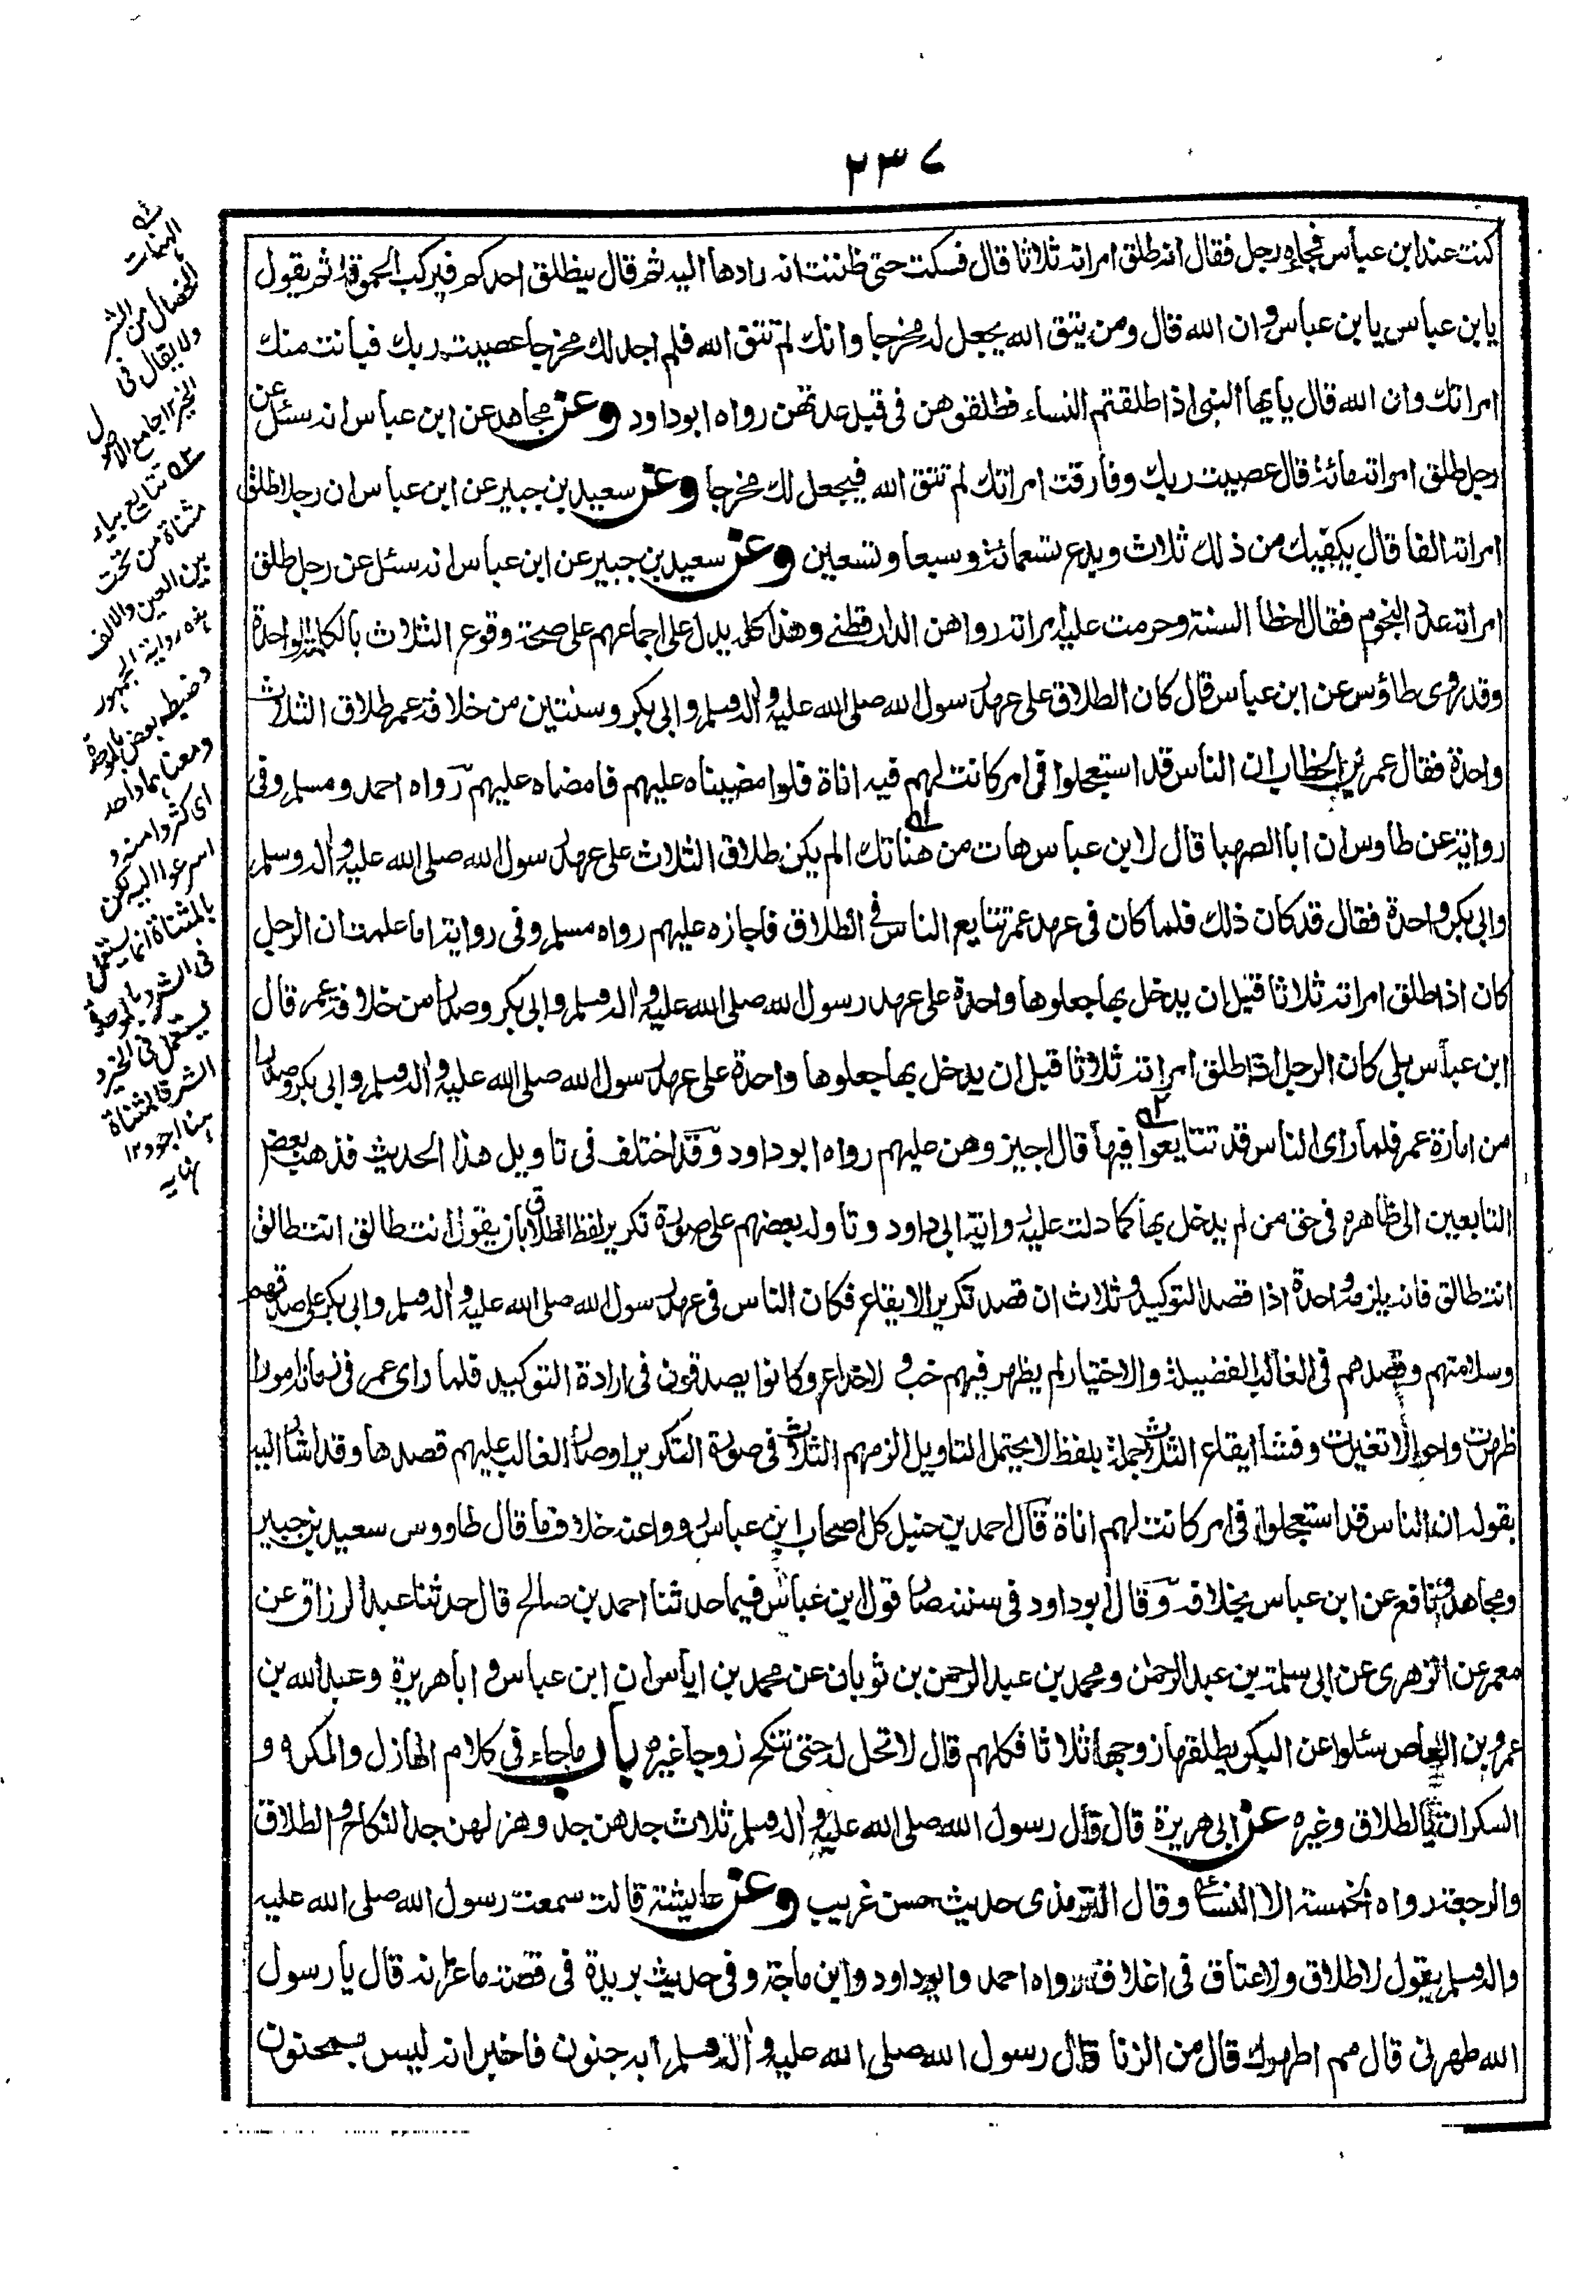 ٢٣٧
كنت عند ابن عباس فجاءه رجل فقال انه طلق امراته ثلاثا قال فسكت حتى ظننت انه رادها اليه ثم قال ينطلق احدكم فيركب الحموقة ثم يقول
يا بن عباس يا بن عباس وان الله قال ومن يتق الله يجعل له مخرجا وانك لم تتق الله فلم اجد لك مخرجا عصيت ربك فبانت منك
امراتك وان الله قال يايها النبي اذا طلقتم النساء فطلقوهن في قبل عدتهن رواه ابو داود وعن مجاهد عن ابن عباس انه سئل عن
رجل طلق امراته مائة قال عصيت ربك وفارقت امراتك لم تتق الله فيجعل لك مخرجا وعن سعيد بن جبير عن ابن عباس ان رجلا طلق
امراته الفا قال يكفيك من ذلك ثلاث ويدع تسعمائة وسبعا وتسعين وعن سعيد بن جبير عن ابن عباس انه سئل عن رجل طلق
امراته عدد النجوم فقال اخطأ السنة وحرمت عليه امراته رواهن الدارقطني وهذا كله يدل على اجماعهم على صحة وقوع الثلاث بالكلمة الواحدة
وقد روى طاؤس عن ابن عباس قال كان الطلاق على عهد رسول الله صلى الله عليه واله وسلم وابي بكر وسنتين من خلافة عمر طلاق الثلاث
واحدة فقال عمر بن الخطاب ان الناس قد استعجلوا في امر كانت لهم فيه اناة فلو امضيناه عليهم فامضاه عليهم رواه احمد ومسلم وفي
رواية عن طاوس ان ابا الصهبا قال لابن عباس هات من هناتك الم يكن طلاق الثلاث على عهد رسول الله صلى الله عليه واله وسلم
وابي بكر واحدة فقال قد كان ذلك فلما كان في عهد عمر تتايع الناس في الطلاق فاجازه عليهم رواه مسلم وفي رواية اما علمت ان الرجل
كان اذا طلق امراته ثلاثا قبل ان يدخل بها جعلوها واحدة على عهد رسول الله صلى الله عليه واله وسلم وابي بكر وصدرا من خلافة عمر قال
ابن عباس بلى كان الرجل اذا طلق امراته ثلاثا قبل ان يدخل بها جعلوها واحدة على عهد رسول الله صلى الله عليه واله وسلم وابي بكر وصدرا
من امارة عمر فلما راى الناس قد تتايعوا فيها قال اجيزوهن عليهم رواه ابو داود وقد اختلف في تاويل هذا الحديث فذهب بعض
التابعين الى ظاهره في حق من لم يدخل بها كما دلت عليه رواية ابي داود وتاوله بعضهم على صورة تكرير لفظ الطلاق بان يقول انت طالق انت طالق
انت طالق فانه يلزمه واحدة اذا قصد التوكيد وثلاث ان قصد تكرير الايقاع فكان الناس في عهد رسول الله صلى الله عليه واله وسلم وابي بكر على صدقهم
وسلامتهم وقصدهم في الغالب الفضيلة والاختيار لم يظهر فيهم خب ولا خداع وكانوا يصدقون في ارادة التوكيد فلما راى عمر في زمانه امورا
ظهرت واحوالا تغيرت وفشا ايقاع الثلاث جملة بلفظ لا يحتمل التاويل الزمهم الثلاث في صورة التكرير اذ صار الغالب عليهم قصدها وقد اشار اليه
بقوله ان الناس قد استعجلوا في امر كانت لهم اناة قال احمد بن حنبل كل اصحاب ابن عباس رووا عنه خلاف ما قال طاووس سعيد بن جبير
ومجاهد ونافع عن ابن عباس بخلافه وقال ابو داود في سننه صار قول ابن عباس فيما حدثنا احمد بن صالح قال حدثنا عبد الرزاق عن
معمر عن الزهري عن ابي سلمة بن عبد الرحمن ومحمد بن عبد الرحمن بن ثوبان عن محمد بن اياس ان ابن عباس وابا هريرة وعبد الله بن
عمرو بن العاص سئلوا عن البكر يطلقها زوجها ثلاثا فكلهم قال لا تحل له حتى تنكح زوجا غيره باب ما جاء في كلام الهازل والمكره و
السكران بالطلاق وغيره عن ابي هريرة قال قال رسول الله صلى الله عليه واله وسلم ثلاث جدهن جد وهزلهن جد النكاح والطلاق
والرجعة رواه الخمسة الا النسائي وقال الترمذي حديث حسن غريب وعن عايشة قالت سمعت رسول الله صلى الله عليه
واله وسلم يقول لا طلاق ولا عتاق في اغلاق رواه احمد وابو داود وابن ماجة وفي حديث بريدة في قصة ماعز انه قال يا رسول
الله طهرني قال مم اطهرك قال من الزنا قال رسول الله صلى الله عليه واله وسلم ابه جنون فاخبر انه ليس بمجنون
الهنات
الخصال من الشر
ولا يقال في
الخير ١٢ جامع الاصول
تتايع بياء
مثناة من تحت
بين العين والالف
هذه رواية الجمهور
وضبطه بعض بالموحدة
ومعناهما واحد
اى كثروا منه و
اسرعوا اليه لكن
بالمثناة انما يستعمل
في الشر وبالموحدة
يستعمل في الخير و
الشر فالمثناة
هنا اجود ١٢
نهايه